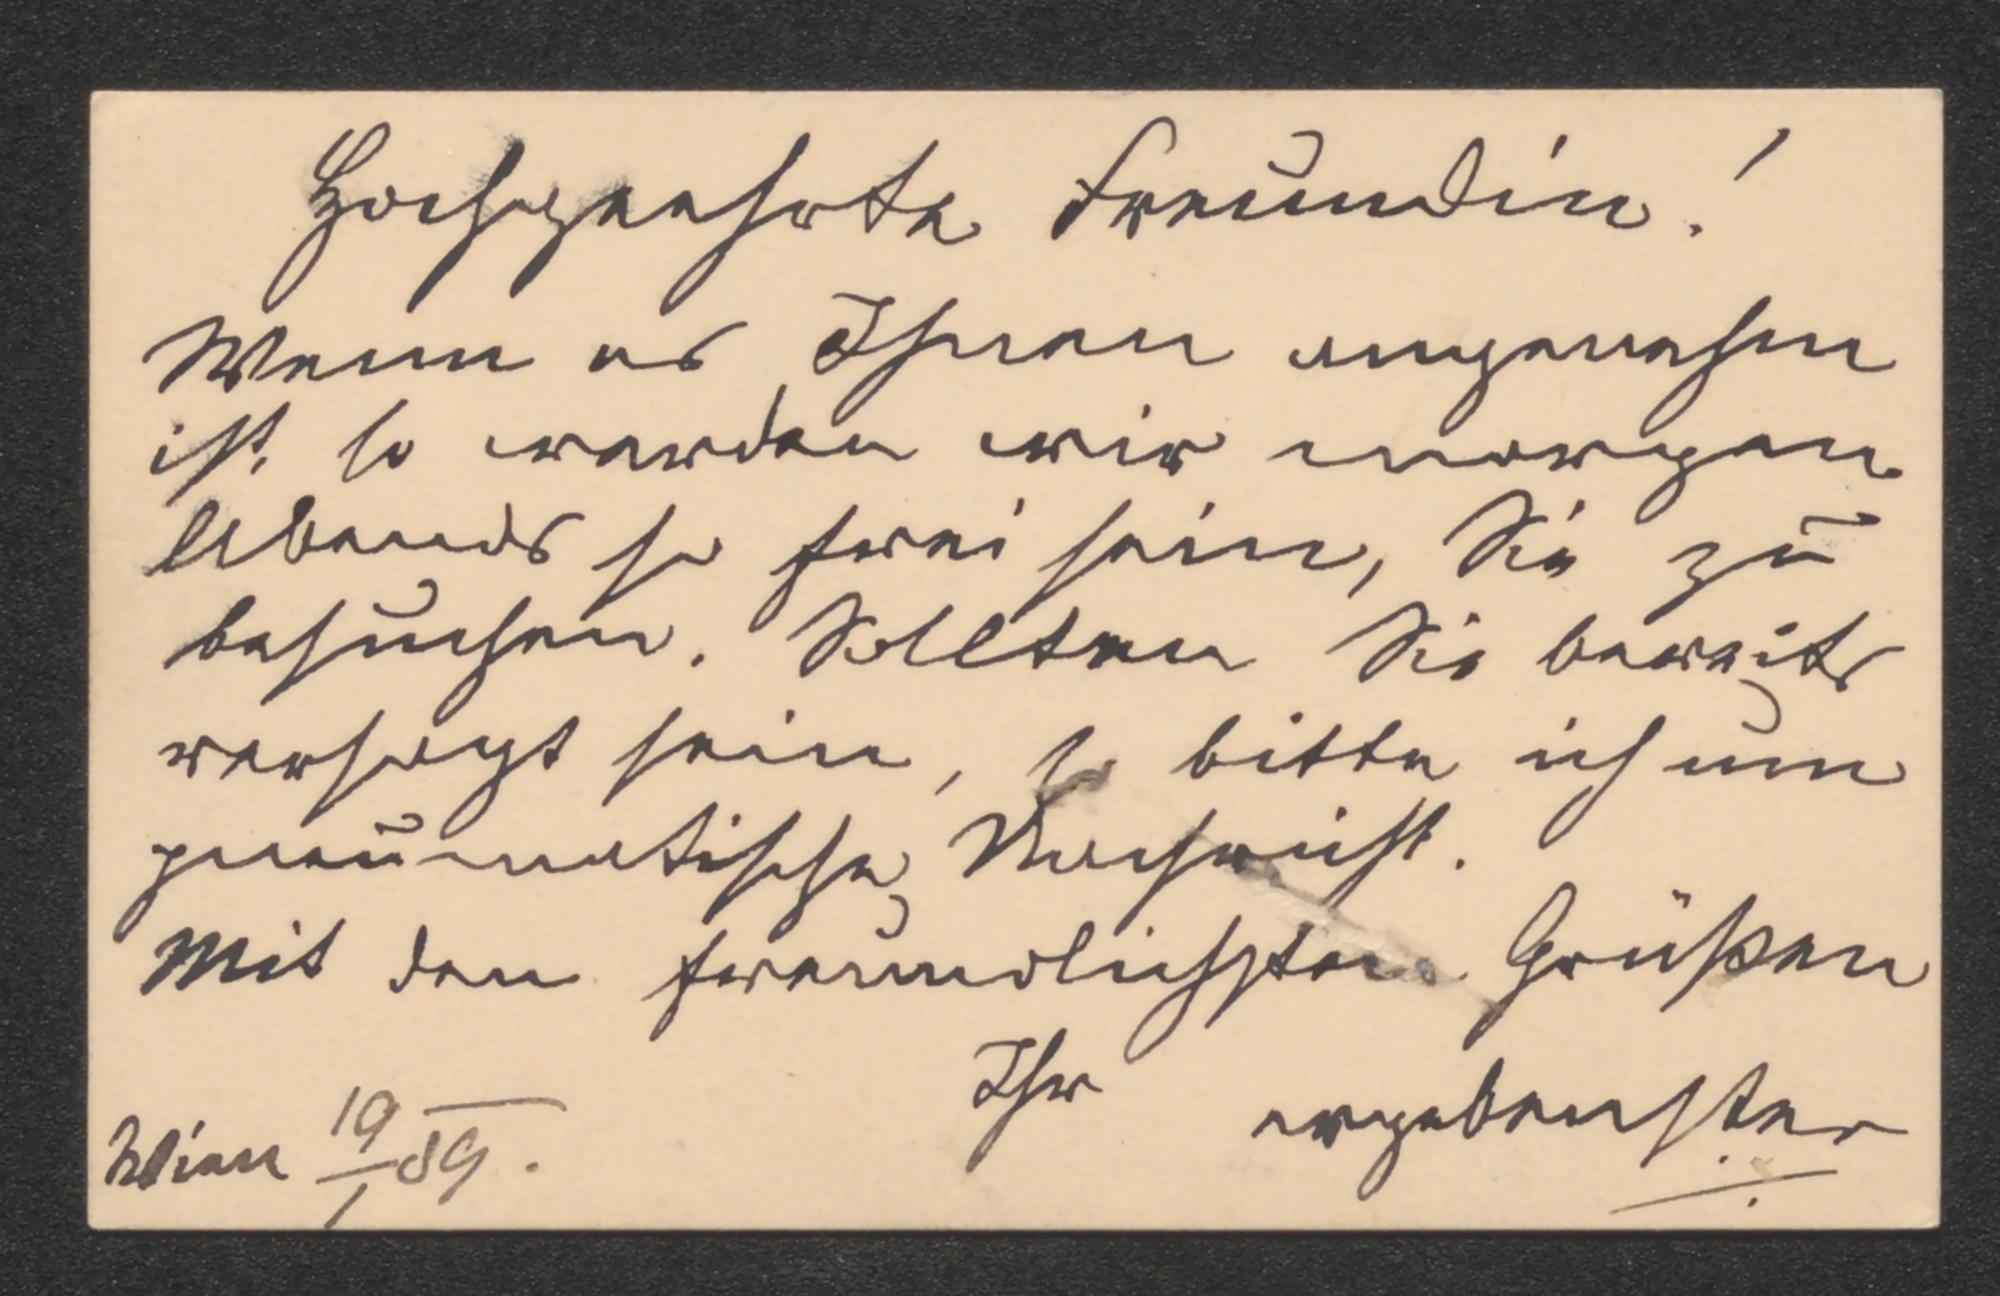 Hochgeehrte Freundin!
Wenn es Ihnen angenehm
ist, so werden wir morgen
Abends so frei sein, Sie zu
besuchen. Sollten Sie bereits
versagt sein, so bitte ich um
pneumatische Nachricht.
Mit den freundlichsten Grüßen
Ihr ergebenster
Wien 19/1 89.